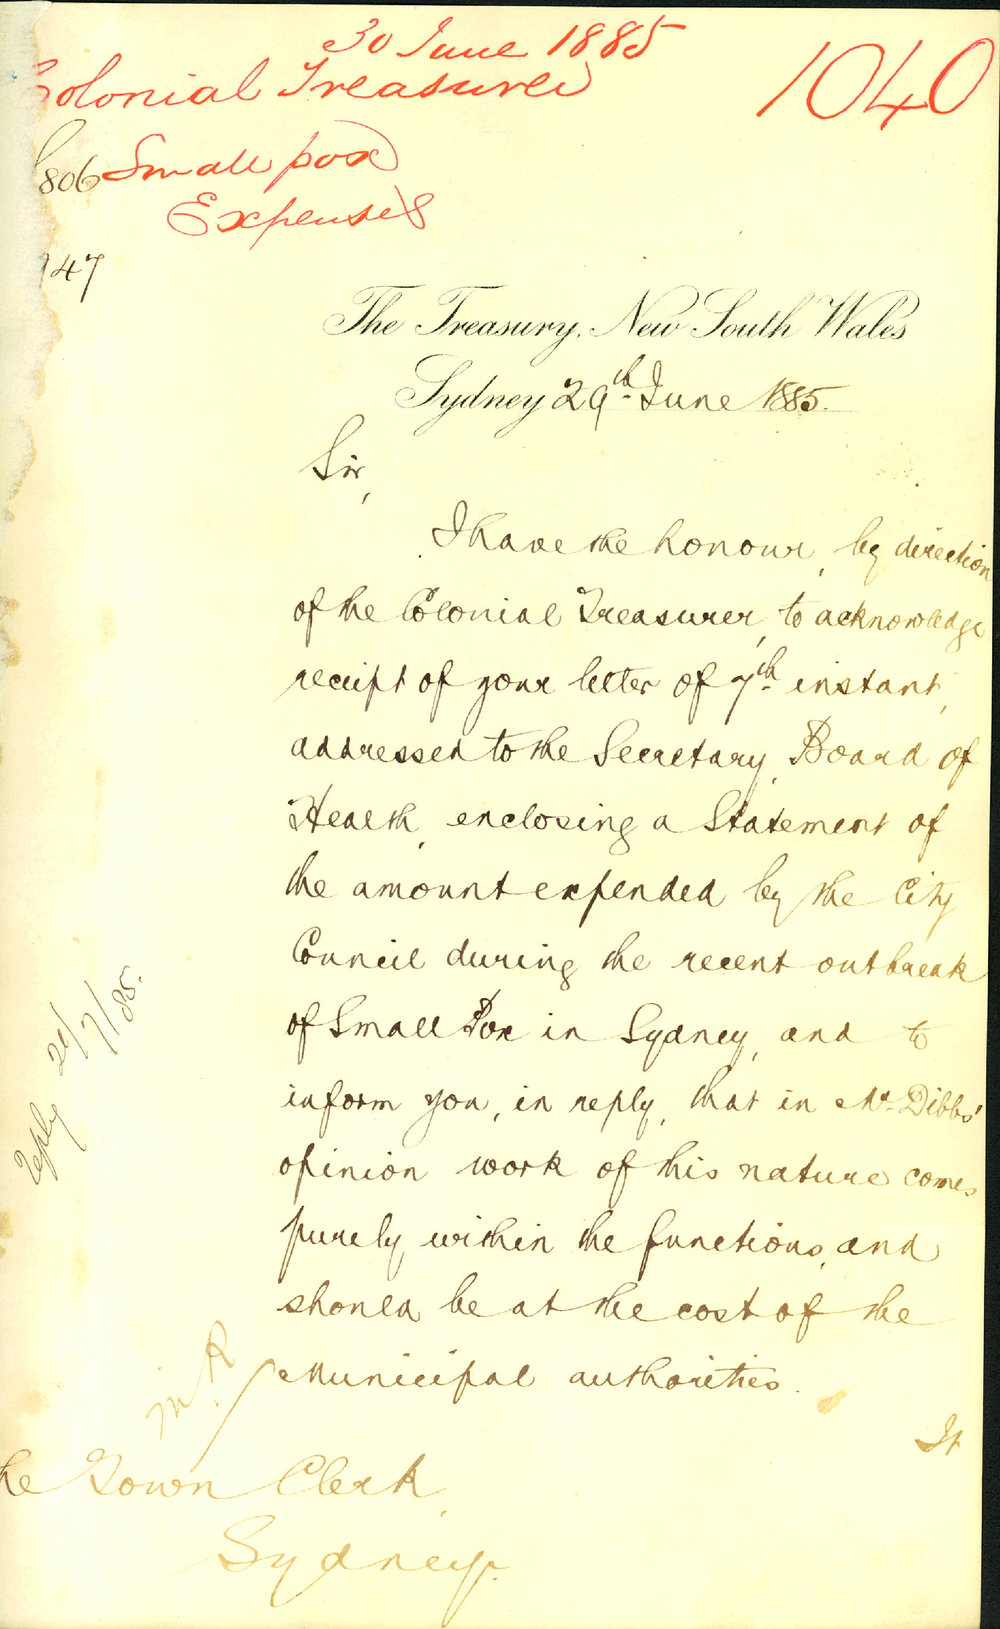 30 June 1885
Colonial Treasurer
1040
806 Small pox
Expenses
147
The Treasury, New South Wales
Sydney 29th June 1885.
Sir,
I have the honour, by direction
of the Colonial Treasurer, to acknowledge
receipt of your letter of 7th instant,
addressed to the Secretary, Board of
Health, enclosing a Statement of
the amount expended by the City
Council during the recent outbreak
of Small Pox in Sydney, and to
inform you, in reply, that in Mr. Dibbs'
opinion work of this nature comes
purely within the functions, and
should be at the cost of the
Municipal authorities.
It
Reply 21/7/85.
M.R
he Town Clerk,
Sydney.